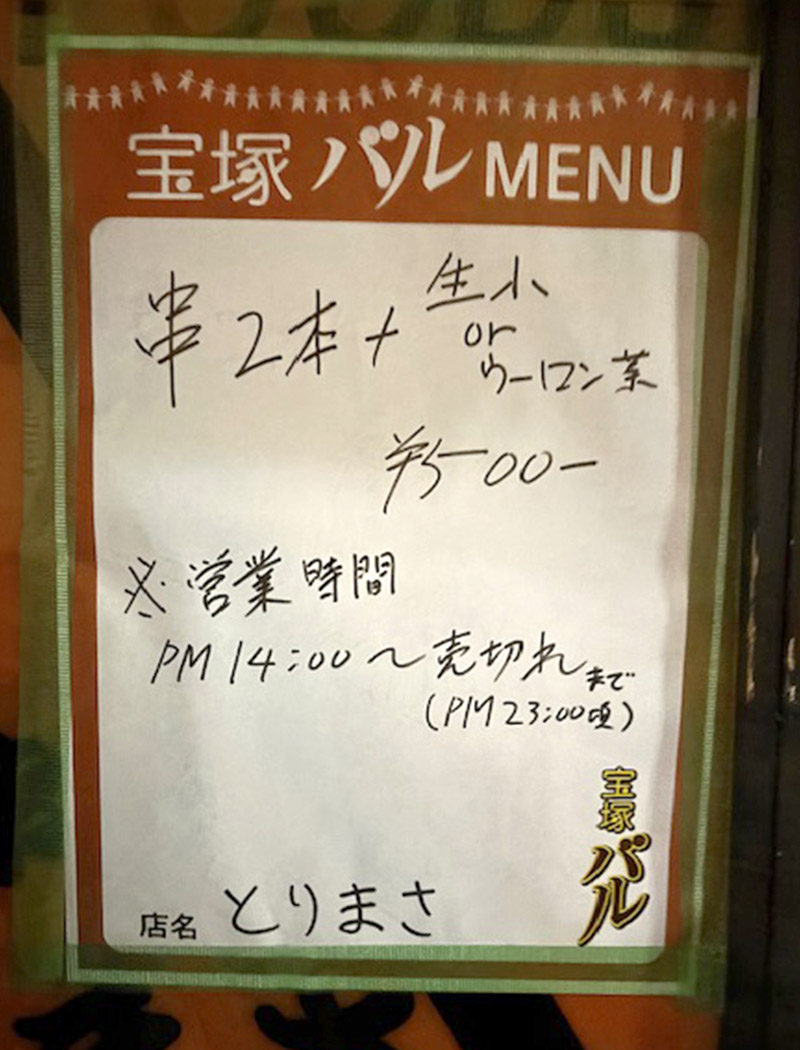 宝塚バル MENU
串2本+生小
or
ウーロン茶
¥500-
※営業時間
PM 14:00〜売切れまで
(PM 23:00頃)
宝塚バル
店名 とりまさ